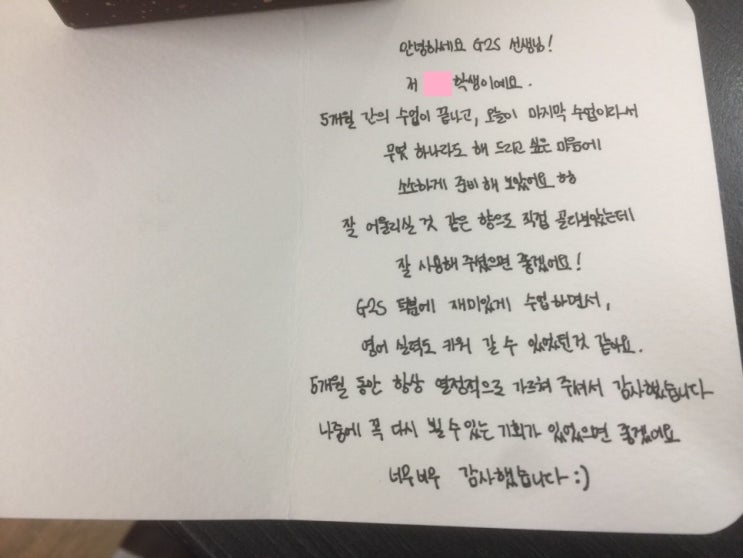 안녕하세요 G2S 선생님!
저 학생이예요.
5개월 간의 수업이 끝나고, 오늘이 마지막 수업이라서
무엇 하나라도 해 드리고 싶은 마음에
소소하게 준비해 보았어요 ㅎㅎ
잘 어울리실 것 같은 향으로 직접 골라보았는데
잘 사용해 주셨으면 좋겠어요!
G2S 덕분에 재미있게 수업하면서,
영어 실력도 키워 갈 수 있었던것 같아요.
5개월 동안 항상 열정적으로 가르쳐 주셔서 감사했습니다
나중에 꼭 다시 뵐 수 있는 기회가 있었으면 좋겠어요
너무너무 감사했습니다 :)